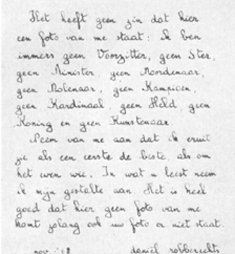 Het heeft geen zin dat hier
een foto van me staat: ik ben
immers geen Voorzitter, geen Ster,
geen Minister, geen Moordenaar,
geen Molenaar, geen Kampioen,
geen Kardinaal, geen Held, geen
Koning en geen Kunstenaar.
Neem van me aan dat ik eruit
zie als een eerste de beste, als om
het even wie. In wat u leest neem
ik mijn gestalte aan. Het is heel
goed dat hier geen foto van me
komt zolang ook uw foto er niet staat.
nov. '68 daniël robberechts